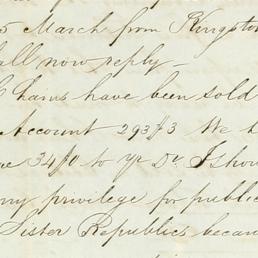 5 March from Kingston
all now reply—
Chains have been sold
Account 293f3 We h
34f0 to yr Dr. I shou
ny privilege for public
Sister Republic becau